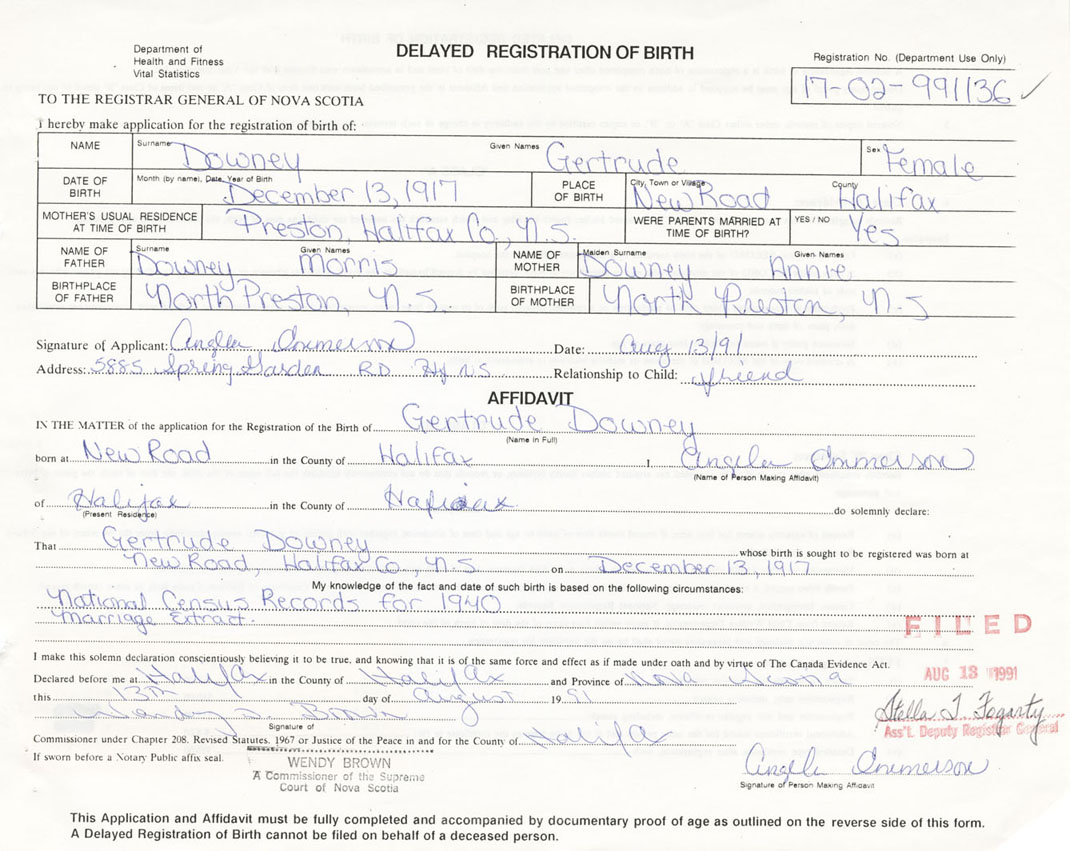 Department of
Health and Fitness
Vital Statistics
DELAYED REGISTRATION OF BIRTH
Registration No. (Department Use Only)
17-02-991136
TO THE REGISTRAR GENERAL OF NOVA SCOTIA
I hereby make application for the registration of birth of:
NAME Surname Downey Given Names Gertrude Sex Female
DATE OF BIRTH Month (by name), Date, Year of Birth December 13, 1917 PLACE OF BIRTH City, Town or Village New Road County Halifax
MOTHER'S USUAL RESIDENCE AT TIME OF BIRTH Preston, Halifax Co., N.S. WERE PARENTS MARRIED AT TIME OF BIRTH? YES / NO Yes
NAME OF FATHER Surname Downey Given Names Morris NAME OF MOTHER Maiden Surname Downey Given Names Annie
BIRTHPLACE OF FATHER North Preston, N.S. BIRTHPLACE OF MOTHER North Preston, N.S
Signature of Applicant: Angela Date: Aug 13/91
Address: 5885 Spring Garden RD Hfx NS Relationship to Child: friend
AFFIDAVIT
IN THE MATTER of the application for the Registration of the Birth of Gertrude Downey
(Name in Full)
born at New Road in the County of Halifax I, Angela
(Name of Person Making Affidavit)
of Halifax in the County of Halifax do solemnly declare:
(Present Residence)
That Gertrude Downey whose birth is sought to be registered was born at
New Road, Halifax Co., N.S on December 13, 1917
My knowledge of the fact and date of such birth is based on the following circumstances:
National Census Records for 1940
Marriage Extract.
FILED
I make this solemn declaration conscientiously believing it to be true, and knowing that it is of the same force and effect as if made under oath and by virtue of The Canada Evidence Act.
Declared before me at Halifax in the County of Halifax and Province of Nova Scotia
AUG 13 1991
this 13th day of August 1991
Wendy Brown
Stella T. Fogarty
Ass't. Deputy Registrar General
Signature of
Commissioner under Chapter 208. Revised Statutes, 1967 or Justice of the Peace in and for the County of Halifax
If sworn before a Notary Public affix seal.
WENDY BROWN
A Commissioner of the Supreme
Court of Nova Scotia
Angela
Signature of Person Making Affidavit
This Application and Affidavit must be fully completed and accompanied by documentary proof of age as outlined on the reverse side of this form.
A Delayed Registration of Birth cannot be filed on behalf of a deceased person.